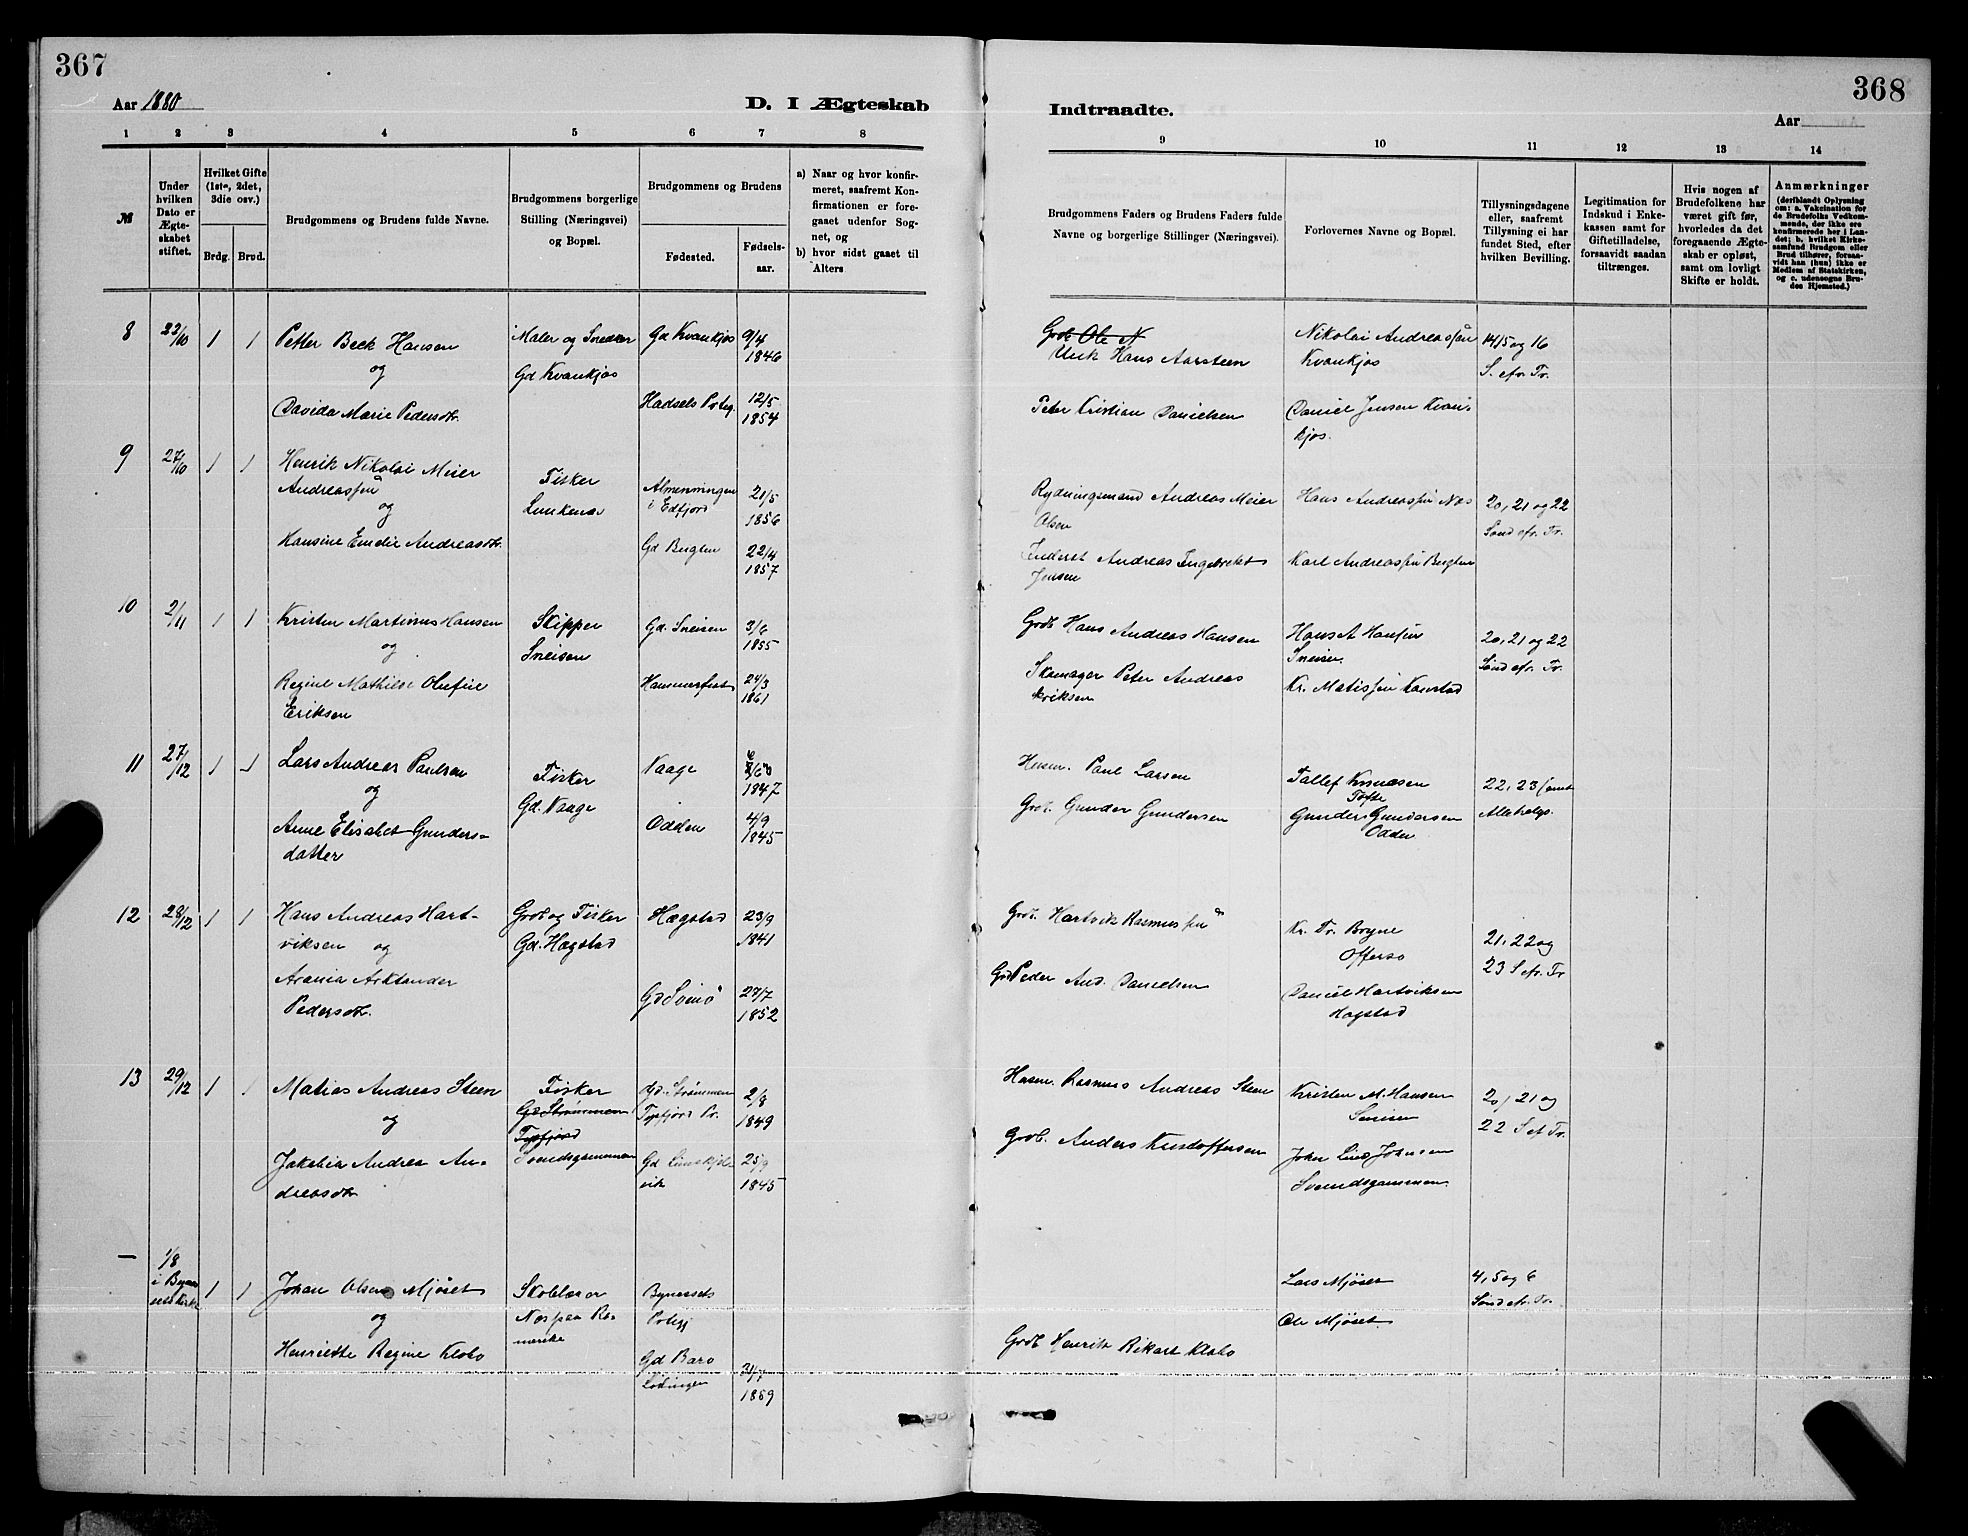 367
368
Aar 1880
D. I Ægteskab
Indtraadte.
Aar
1 2 3 4 5 6 7 8
9 10 11 12 13 14
№
Under hvilken Dato er Ægteskabet stiftet.
Hvilket Gifte (1ste, 2det, 3die osv.)
Brdg. Brud.
Brudgommens og Brudens fulde Navne.
Brudgommens borgerlige Stilling (Næringsvei) og Bopæl.
Brudgommens og Brudens
Fødested.
Fødselsaar.
a) Naar og hvor konfirmeret, saafremt Konfirmationen er foregaaet udenfor Sognet, og
b) hvor sidst gaaet til Alters
Brudgommens Faders og Brudens Faders fulde Navne og borgerlige Stillinger (Næringsvei).
Forlovernes Navne og Bopæl.
Tillysningsdagene eller, saafremt Tillysning ei har fundet Sted, efter hvilken Bevilling.
Legitimation for Indskud i Enkekassen samt for Giftetilladelse, forsaavidt saadan tiltrænges.
Hvis nogen af Brudefolkene har været gift før, hvorledes da det foregaaende Ægteskab er opløst, samt om lovligt Skifte er holdt.
Anmærkninger
(deriblandt Oplysning om: a. Vakcination for de Brudefolks Vedkommende, der ikke ere konfirmerede her i Landet; b. hvilket Kirkesamfund Brudgom eller Brud tilhører, forsaavidt han (hun) ikke er Medlem af Statskirken, og c. udensogns Brudes Hjemsted.)
8 1 1 Petter Beck Hansen
og
Davida Marie Pedersdtr.
Maler og Snedker
Gd Kvankjos
Gd Kvankjos 9/4 1846
Hadsels Prteg. 12/5 1854
Hans Aarsteen
Peter Kristian Danielsen
Nikolai Andreassøn
Kvankjos
Daniel Jensen Kvankjos.
14, 15 og 16
S. efr. Tr.
9 27/10 1 1 Henrik Nikolai Meier
Andreassøn
og
Hansine Emelie Andreasdtr.
Fisker
Almenningen
i Edfjord 21/5 1856
22/4 1857
Rydningsmand Andreas Meier
Olsen
Inderst Andreas Ingebrekt
Jensen
Hans Andreassøn Næs
Karl Andreassøn
20, 21 og 22
Sønd efr. Tr.
10 2/11 1 1 Kristen Martinus Hansen
og
Regine Mathilde Olufine
Eriksen
Skipper
Sneisen
Gd. Sneisen 3/6 1855
Hammerfest 24/3 1861
Grdb Hans Andreas Hansen
Skomager Peter Andreas
Eriksen
Hans A Hansen
Sneisen.
Kr. Matissøn Kanstad
20, 21 og 22
Sønd efr. Tr.
11 27/12 1 1 Lars Andreas Paulsen
og
Anne Elisabet Gundersdatter
Fisker
Gd. Vaage
Vaage 1847
Odden 4/9 1845
Husm. Paul Larsen
Grdb. Gunder Gundersen
Tallef
Tofte
Gunder Gundersen
Odden
22, 23 samt
Allehelgs.
12 28/12 1 1 Hans Andreas Hartviksen og
Pedersdtr.
Grdb og Fisker
Gd. Hægstad
Hægstad 23/9 1841
Gd Svinø 27/7 1852
Grdb. Hartvik Rasmussøn
Grdb Peder And. Danielsen
Kr. Fr. Bryne
Offersø
Daniel Hartviksen
Hægstad
21, 22 og
23 S efr. Tr
13 29/12 1 1 Matias Andreas Steen
og
Jakobia Andrea Andreasdtr.
Fisker
Gd Strømmen
Tysfjord
Svendsgammen
Gd. Strømmen
Tysfjord Pr. 2/8 1849
25/9 1845
Husm. Rasmus Andreas Steen
Grdb. Anders Kristoffersen
Kristen M. Hansen
Sneisen
John Johnsen
Svendsgammen.
20, 21 og
22 S ef Tr.
— 1/8
1 1 Johan Olsen Mjøset
og
Henriette Regine Klobo
Skolelærer
Næs paa Romerike
Bynessets
Prtegj
Gd Barø
Lødingen 31/7 1859
Grdb Henrik Rikart Klobo
Lars Mjøset
Ole Mjøset.
4, 5 og 6
Sønd efr. Tr.